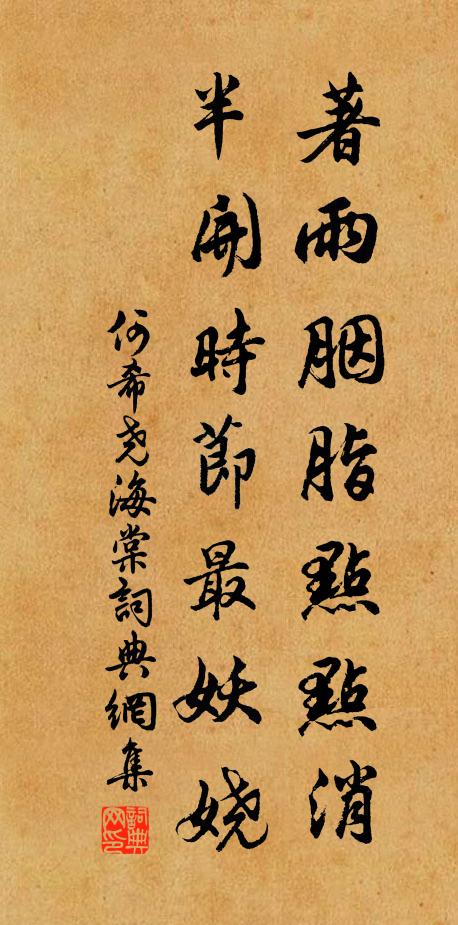 著雨胭脂點點消
半開時節最妖嬈
何希堯海棠詞典網集
詞典網印